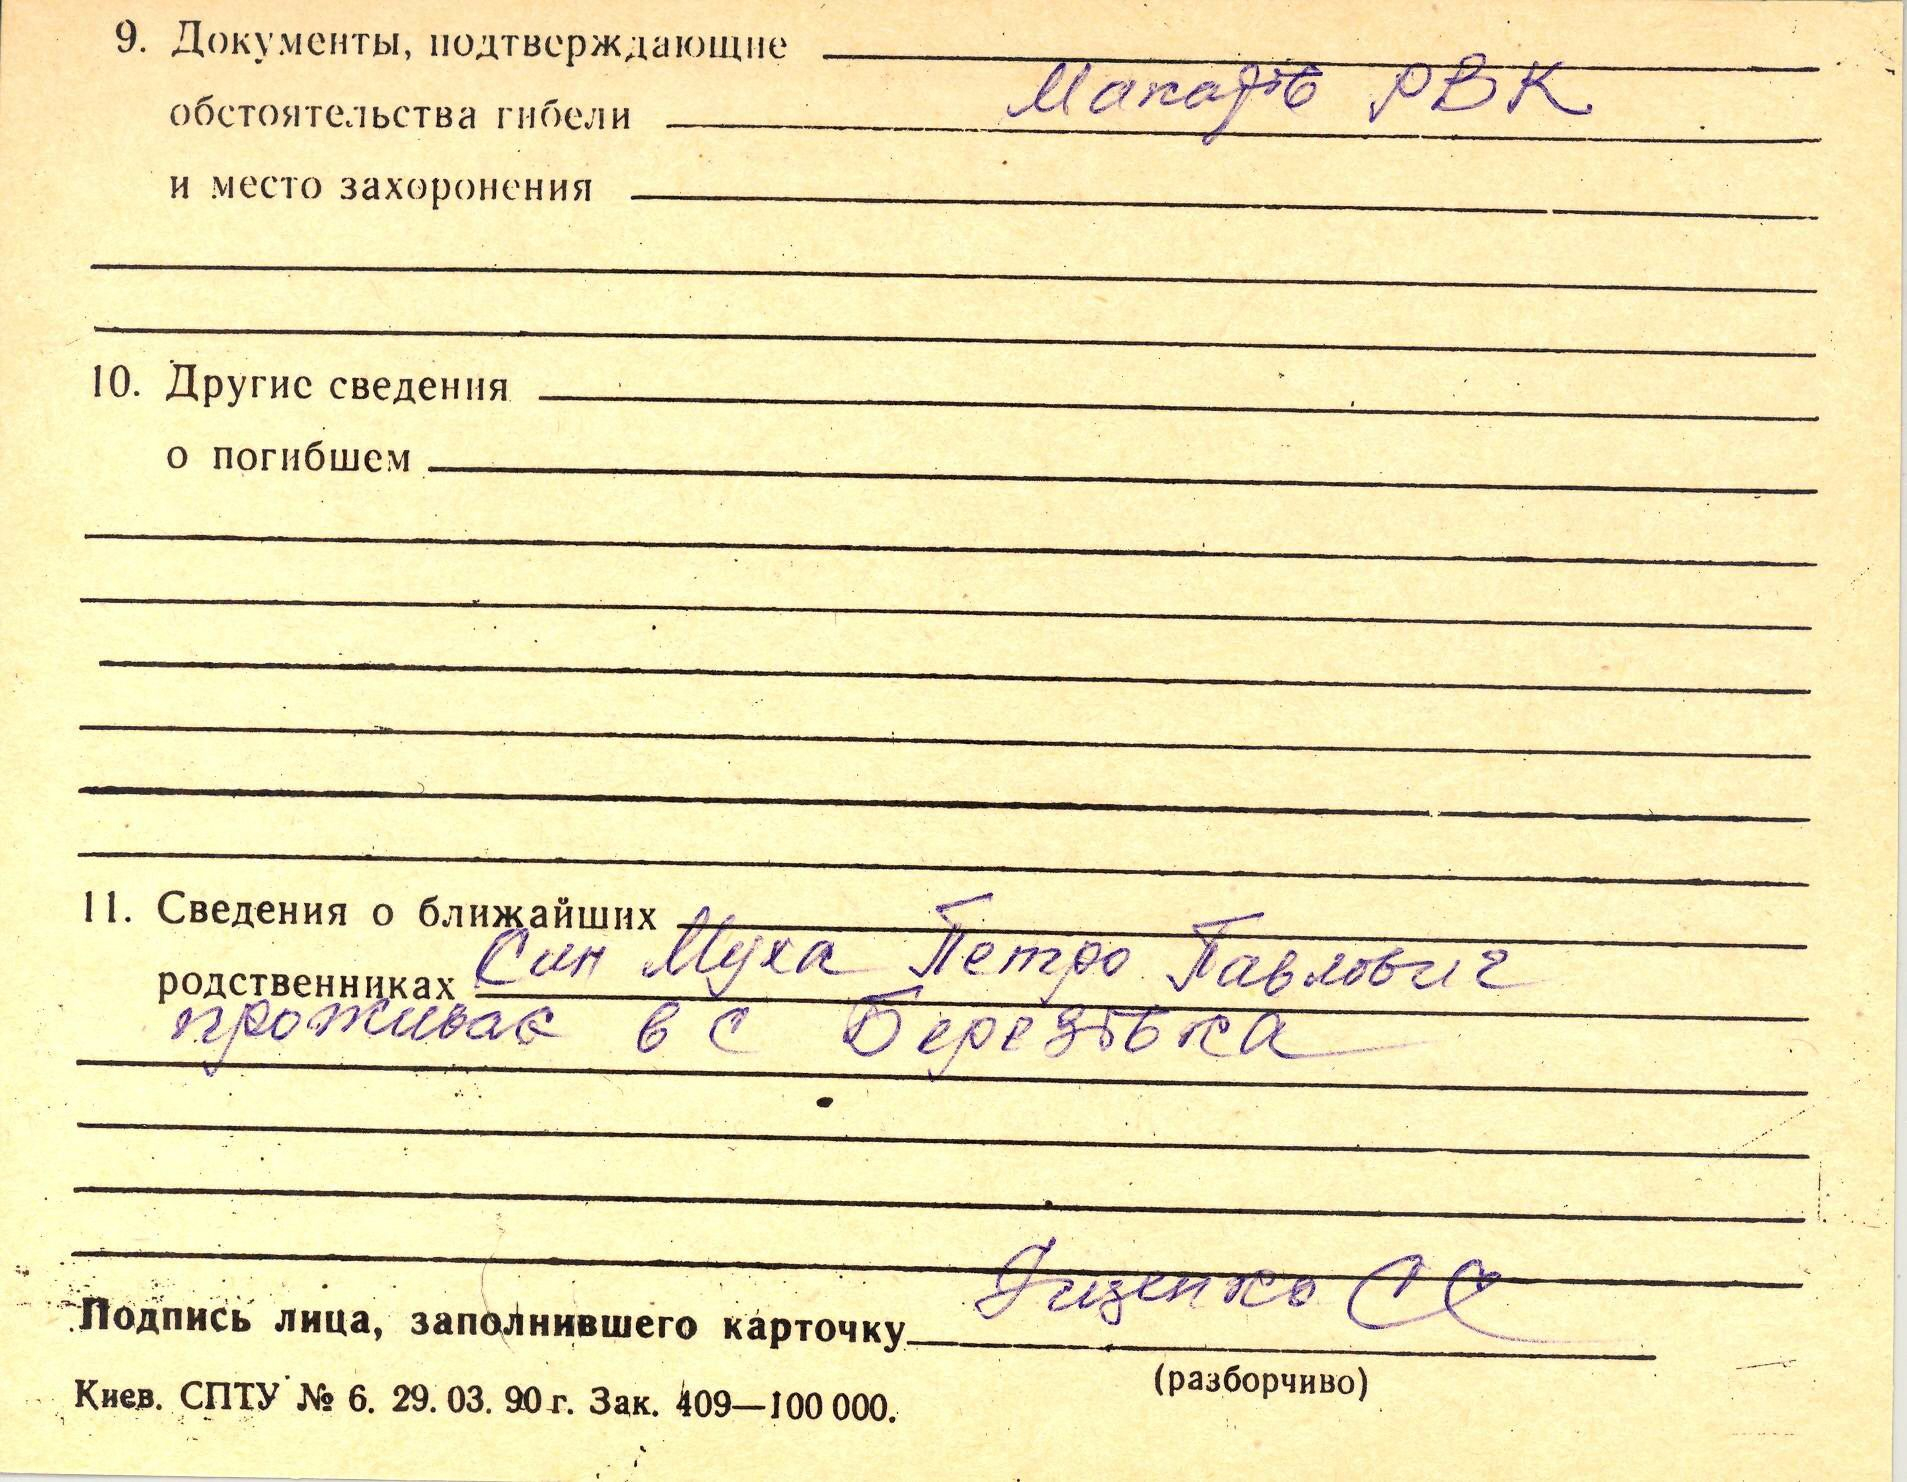 9. Документы, подтверждающие
обстоятельства гибели Макарів РВК
и место захоронения
10. Другие сведения
о погибшем
11. Сведения о ближайших
родственниках Син Муха Петро Павлович
проживає в с Березівка
Подпись лица, заполнившего карточку
(разборчиво)
Киев. СПТУ № 6. 29. 03. 90 г. Зак. 409—100 000.